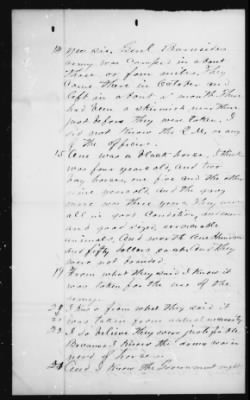 14 Yes sir. Genl Burnsides
army was camped in about
three or four miles, they
came there in October and
left in about a month. There
had been a skirmish near there
just before they were taken. I
did not know the Q.M. or any
of the officers.
15 One was a black horse, I think
was four years old, and two
bay horses, one five and the other
nine years old, and the gray
mare was three years. They were
all in good condition, and
and good sized, serviceable
animals, and worth One Hundred
and fifty dollars each. And they
were not branded.
19 From what they said I know it
was taken for the use of the
army.
I know from what they said it
was taken from actual necessity
23 I so believe they were justifiable
Because I knew the army was in
need of horses.
24 And I know the Government ought